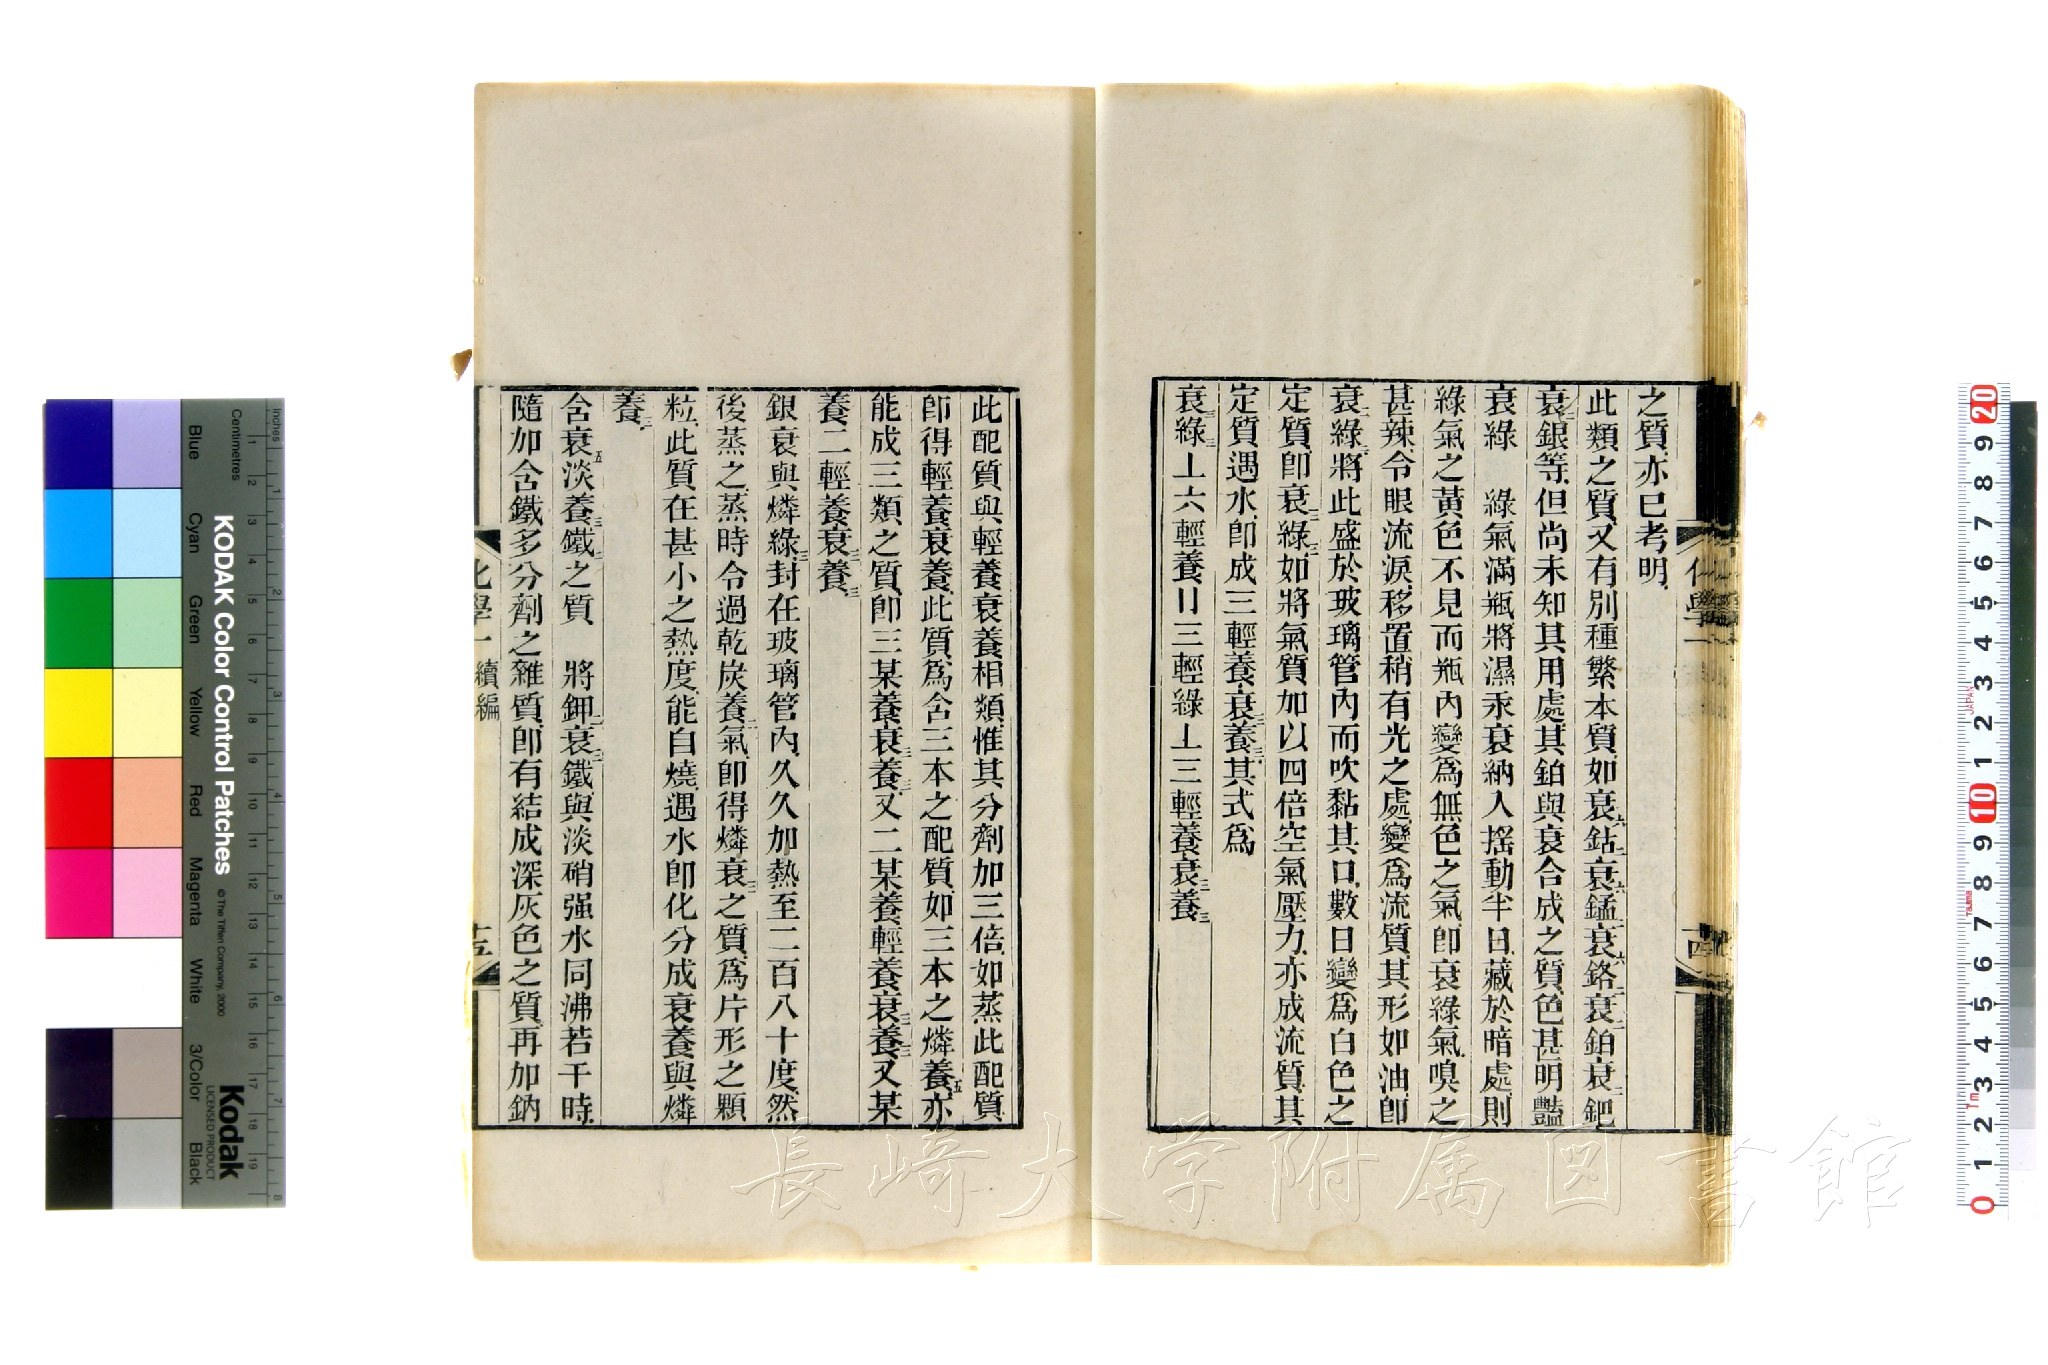 之質亦已考明
此類之質又有別種繁本質如衰六鈷衰六錳衰六鉻衰二鉑衰二鈀
衰二銀等但尚未知其用處其鉑與衰合成之質色甚明豔
衰綠　綠氣滿瓶將濕汞衰納入搖動半日藏於暗處則
綠氣之黃色不見而瓶內變爲無色之氣卽衰綠氣嗅之
甚辣令眼流淚移置稍有光之處變爲流質其形如油卽
衰二綠二將此盛於玻璃管內而吹黏其口數日變爲白色之
定質卽衰三綠三如將氣質加以四倍空氣壓力亦成流質其
定質遇水卽成三輕養衰三養三其式爲
衰三綠三⊥六輕養〢三輕綠⊥三輕養衰三養三
化學一
十四
此配質與輕養衰養相類惟其分劑加三倍如蒸此配質
卽得輕養衰養此質爲含三本之配質如三本之燐養五亦
能成三類之質卽三某養衰三養三又二某養輕養衰三養三又某
養二輕養衰三養三
銀衰與燐綠三封在玻璃管內久久加熱至二百八十度然
後蒸之蒸時令過乾炭養二氣卽得燐衰三之質爲片形之顆
粒此質在甚小之熱度能自燒遇水卽化分成衰養與燐
養三
含衰五淡養二鐵二之質　將鉀二衰三鐵與淡硝强水同沸若干時
隨加含鐵多分劑之雜質卽有結成深灰色之質再加鈉
化學一 續編
十五
KODAK Color Control Patches
© The Tiffen Company, 2000
Kodak
LICENSED PRODUCT
Inches
Centimetres
Blue
Cyan
Green
Yellow
Red
Magenta
White
3/Color
Black
長崎大学附属図書館